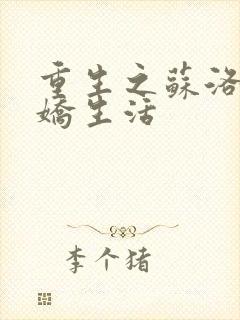 重生之蘇洛
嬌生活
李个猪